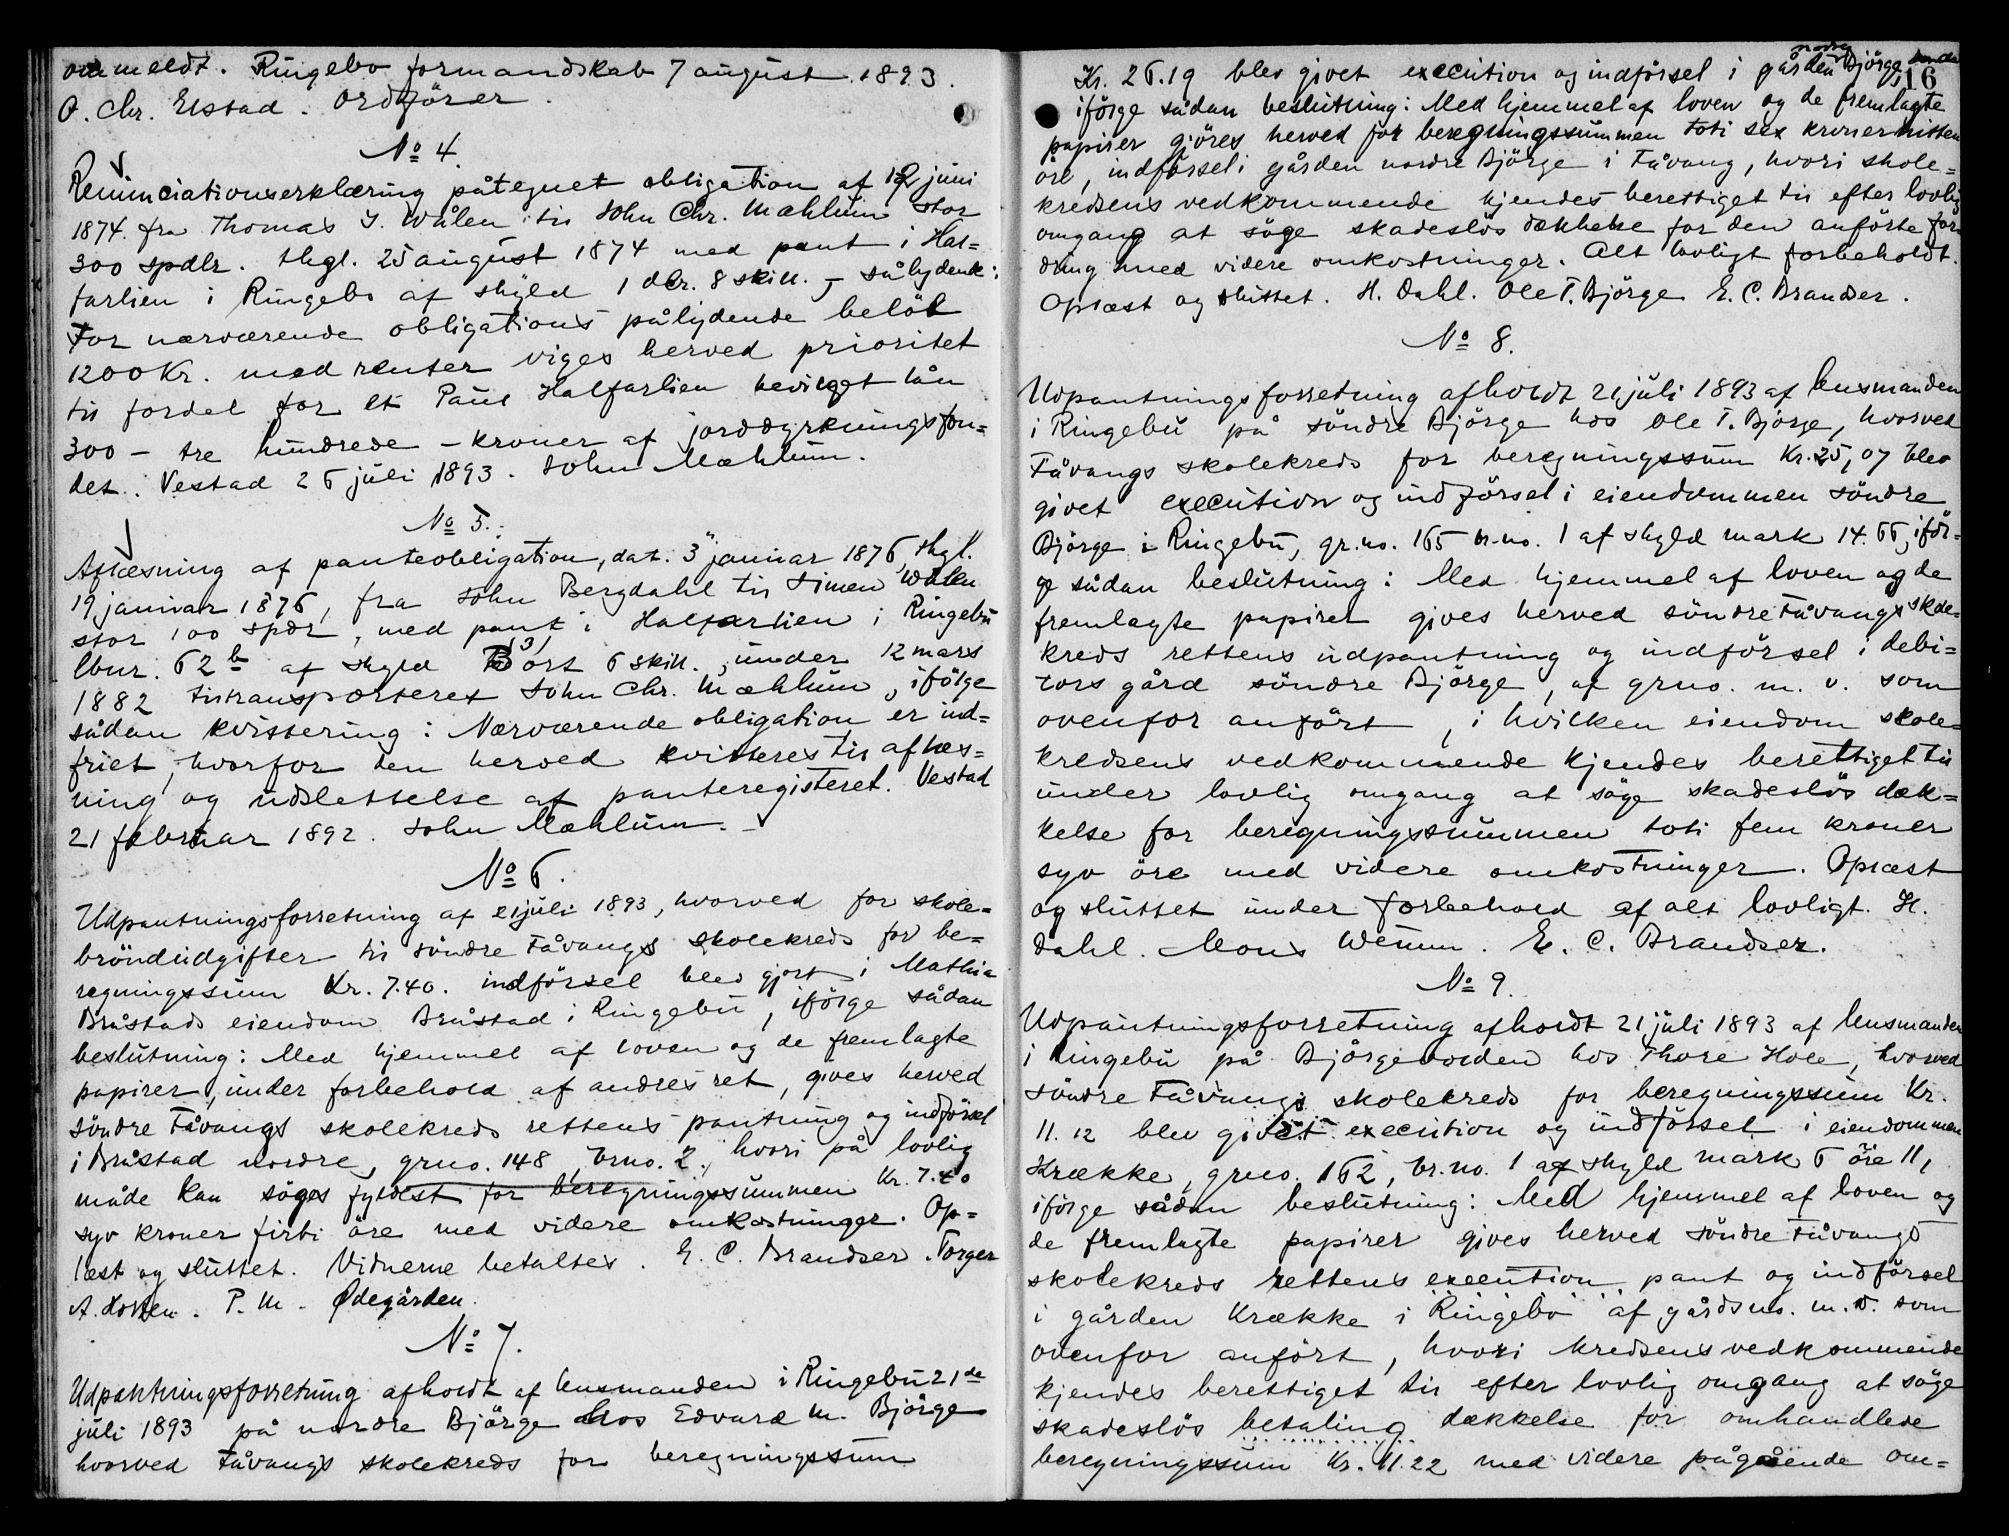 anmeldt. Ringebo formandskab 7 august 1893.
O. Chr. Elstad. Ordfører.
No 4.
Renunciationserklæring påtegnet obligation af 12 juni
1874 fra Thomas I. Wålen til John Chr. Mæhlum stor
300 spdlr. thgl. 25 august 1874 med pant i Hal=
farlien i Ringebo af skyld 1 dlr. 8 skill. - sålydende:
For nærværende obligations pålydende beløb
1200 Kr. med renter viges herved prioritet
til fordel for et Paul Halfarlien bevilget lån
300 - tre hundrede - kroner af jorddyrkningsfon=
det. Vestad 26 juli 1893. John Mæhlum.
No 5.
Aflæsning af panteobligation, dat. 3 januar 1876, thgl.
19 januar 1876, fra John Bergdahl til Simen Wålen
stor 100 spdr, med pant i Halfarlien i Ringebu
lbnr. 62 b af skyld 3 ort 6 skill., under 12 mars
1882 tiltransporteret John Chr. Mæhlum, ifölge
sådan kvittering: Nærværende obligation er ind=
friet, hvorfor den herved kvitteres til aflæs=
ning og udslettelse af panteregisteret. Vestad
21 februar 1892. John Mæhlum. -
No 6.
Udpantningsforretning af 21 juli 1893, hvorved for skole=
bröndudgifter til söndre Fåvangs skolekreds for be=
regningssum Kr. 7.40. indförsel blev gjort i Mathia
Bråstads eiendom Bråstad i Ringebu, ifölge sådan
beslutning: Med hjemmel af loven og de fremlagte
papirer, under forbehold af andres ret, gives herved
söndre Fåvangs skolekreds rettens pantning og indförsel
i Bråstad nordre, grno. 148, brno. 2, hvori på lovlig
måde kan söges fyldest for beregningssummen Kr. 7.40
syv kroner firti öre med videre omkostninger. Op=
læst og sluttet. Vidnerne betaltes. E. C. Brandser. Torger
A. P. M. Ødegården.
No 7.
Udpantningsforretning afholdt af lensmanden i Ringebu 21de
juli 1893 på nordre Björge hos Edvard M. Björge
hvorved Fåvangs skolekreds for beregningssum
16
Kr. 26.19 blev givet execution og indförsel i gården nordre Björge
ifölge sådan beslutning: Med hjemmel af loven og de fremlagte
papirer gjöres herved for beregningssummen toti sex kroner nitten
öre, indförsel i gården nordre Björge i Fåvang, hvori skole=
kredsens vedkommende kjendes berettiget til efter lovlig
omgang at söge skadeslös dækkelse for den anförte for=
dring med videre omkostninger. Alt lovligt forbeholdt.
Oplæst og sluttet. H. Dahl. Ole T. Björge E. C. Brandser.
No 8.
Udpantningsforretning afholdt 21 juli 1893 af lensmanden
i Ringebu på söndre Björge hos Ole T. Björge, hvorved
Fåvangs skolekreds for beregningssum Kr. 25,07 blev
givet execution og indförsel i eiendommen söndre
Björge i Ringebu, gr.no. 165 br.no. 1 af skyld mark 14.66, iföl=
ge sådan beslutning: Med hjemmel af loven og de
fremlagte papirer gives herved söndre Fåvangs skole=
kreds rettens udpantning og indförsel i debi=
tors gård söndre Björge, af grno. m. v. som
ovenfor anfört, i hvilken eiendom skole=
kredsens vedkommende kjendes berettiget til
under lovlig omgang at söge skadeslös dæk=
kelse for beregningssummen toti fem kroner
syv öre med videre omkostninger. Oplæst
og sluttet under forbehold af alt lovligt. H.
Dahl. Mons Wemun. E. C. Brandser.
No 9.
Udpantningsforretning afholdt 21 juli 1893 af lensmanden
i Ringebu på Björgevolden hos Thore Hole, hvorved
söndre Fåvangs skolekreds for beregningssum Kr.
11.12 blev givet execution og indförsel i eiendommen
Krække, grno. 162, br.no. 1 af skyld mark 6 öre 11,
ifölge sådan beslutning: Med hjemmel af loven og
de fremlagte papirer gives herved söndre Fåvangs
skolekreds rettens execution pant og indförsel
i gården Krække i Ringebo af gårdsno. m. v. som
ovenfor anfört, hvori kredsens vedkommende
kjendes berettiget til efter lovlig omgang at söge
skadeslös betaling dækkelse for omhandlede
beregningssum Kr. 11.22 med videre pågående om=